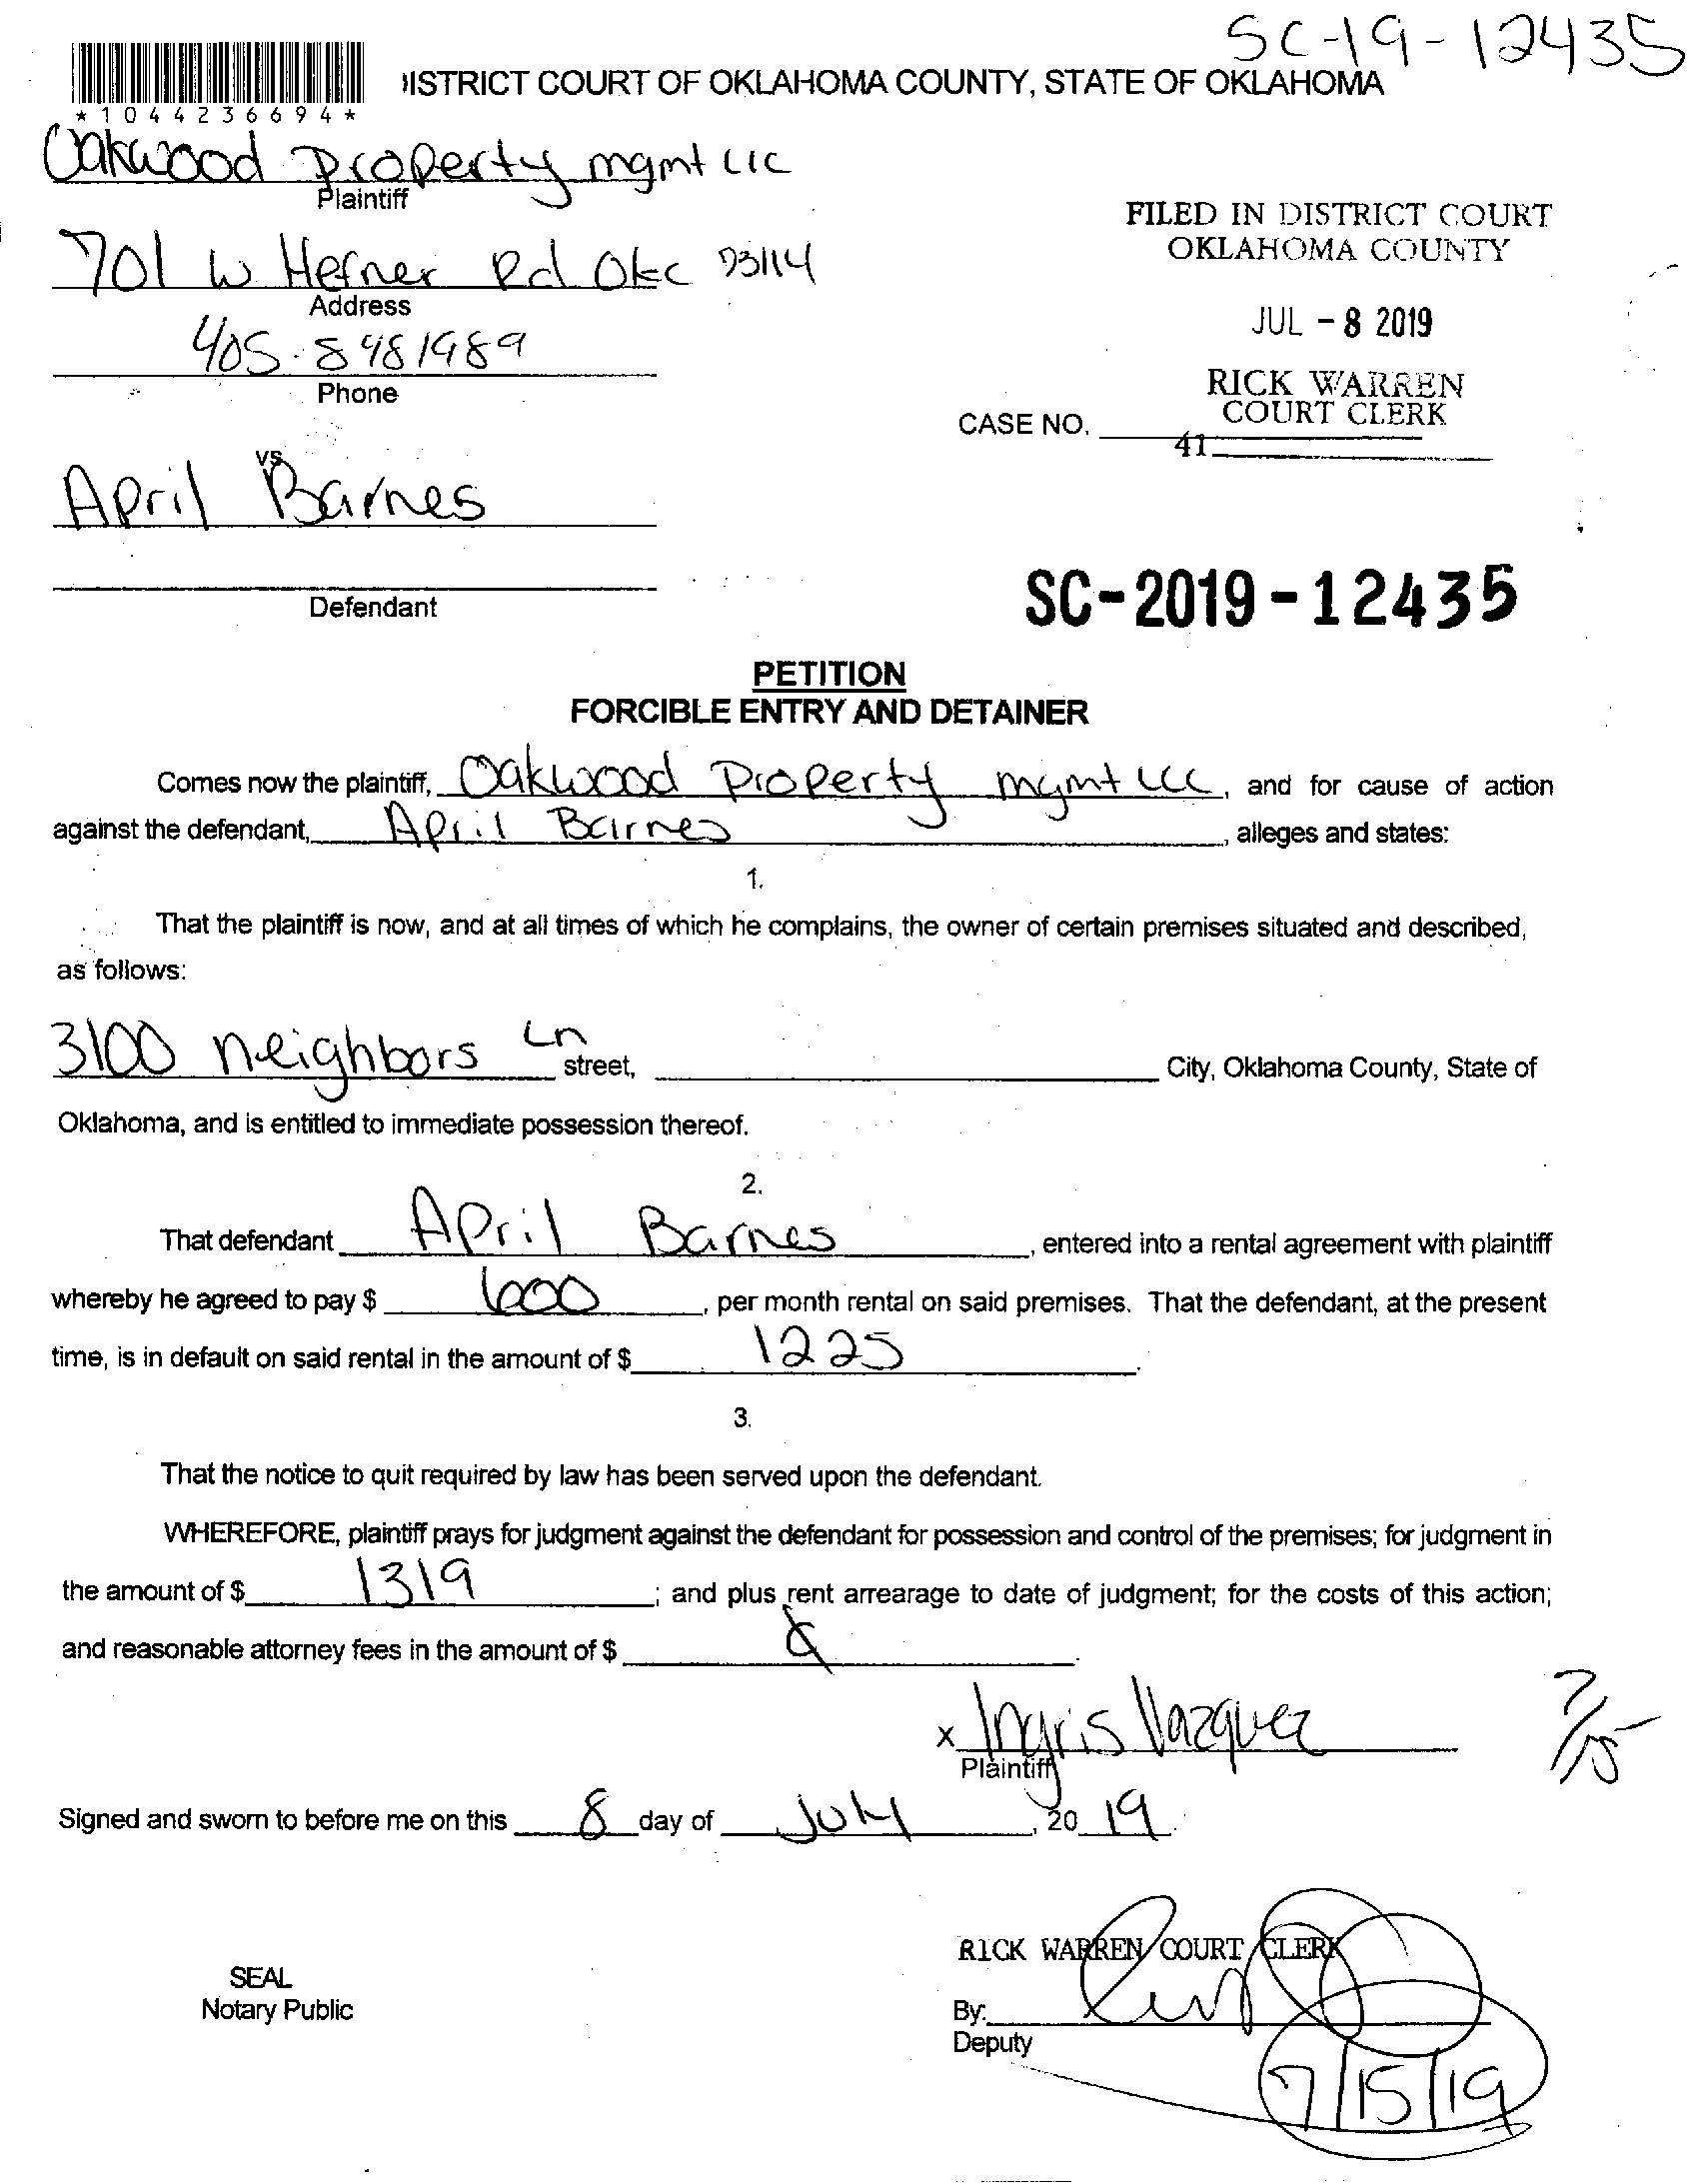 SC-19-12435
ISTRICT COURT OF OKLAHOMA COUNTY, STATE OF OKLAHOMA
*1044236694*
Oakwood Property mgmt LLC
Plaintiff
FILED IN DISTRICT COURT
OKLAHOMA COUNTY
701 W Hefner Rd Okc 73114
Address
JUL - 8 2019
405-8481989
Phone
RICK WARREN
COURT CLERK
CASE NO.
41
vs
April Barnes
Defendant
SC-2019-12435
PETITION
FORCIBLE ENTRY AND DETAINER
Comes now the plaintiff, Oakwood Property mgmt LLC, and for cause of action
against the defendant, April Barnes, alleges and states:
1.
That the plaintiff is now, and at all times of which he complains, the owner of certain premises situated and described,
as follows:
3100 neighbors Ln street, City, Oklahoma County, State of
Oklahoma, and is entitled to immediate possession thereof.
2.
That defendant April Barnes, entered into a rental agreement with plaintiff
whereby he agreed to pay $ 600, per month rental on said premises. That the defendant, at the present
time, is in default on said rental in the amount of $ 1225.
3.
That the notice to quit required by law has been served upon the defendant.
WHEREFORE, plaintiff prays for judgment against the defendant for possession and control of the premises; for judgment in
the amount of $ 1319; and plus rent arrearage to date of judgment; for the costs of this action;
and reasonable attorney fees in the amount of $
x Ingris Vazquez
Plaintiff
7/15
Signed and sworn to before me on this 8 day of July, 20 19.
RICK WARREN COURT CLERK
SEAL
Notary Public
By:
Deputy
7/15/19